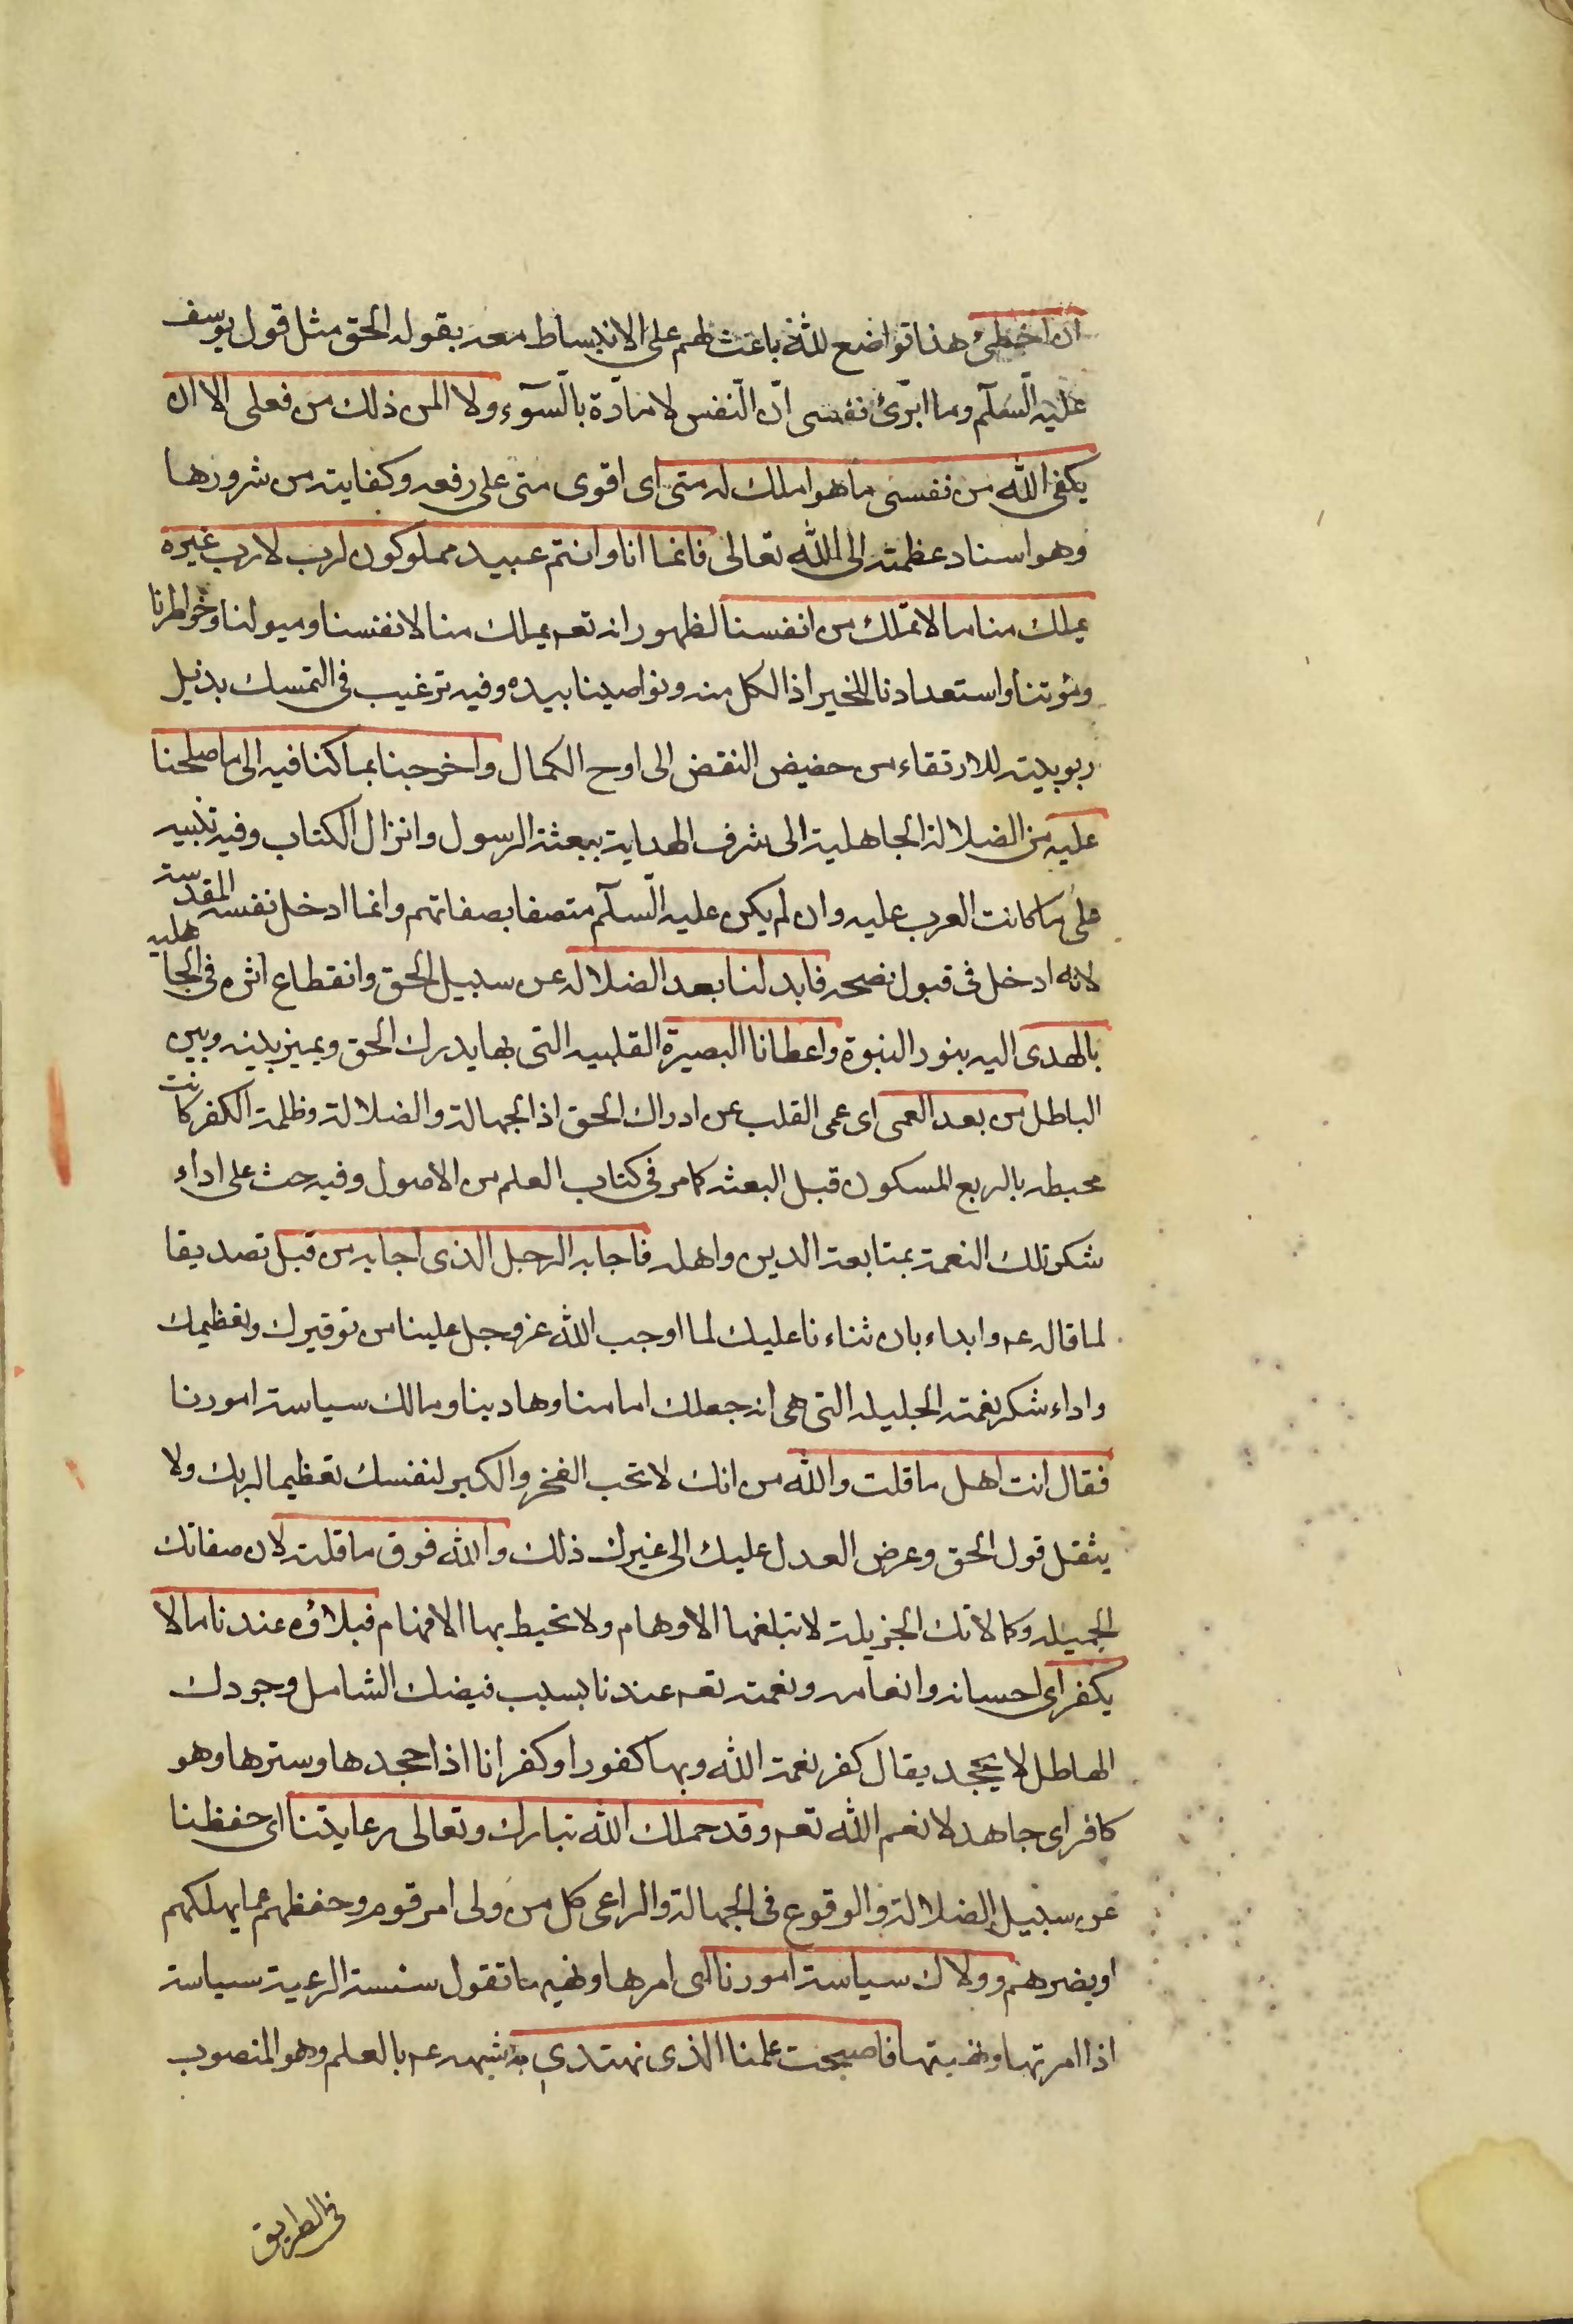 ان اخطئ هذا تواضع لله باعث لهم على الانبساط معه بقوله الحق مثل قول يوسف
عليه السّلآم وما ابرّئ نفسى انّ النّفس لامّارة بالسّوٓء ولا المن ذلك من فعلى الا ان
يكفى الله من نفسى ما هو املك له منى اى اقوى منى على رفعه وكفايته من شرورها
وهو اسناد عظمته الى الله تعالى فانما انا وانتم عبيد مملوكون لرب لا رب غيره
يملك منا ما لا نملك من انفسنا لظهور انه تعم يملك منا لانفسنا وميولنا وخواطرنا
وقوتنا واستعدادنا للخير اذ الكل منه ونواصينا بيده وفيه ترغيب فى التمسك بذيل
ربوبيته للارتقاء من حضيض النقض الى اوح الكمال واخرجنا بما كنا فيه الى ما صلحنا
عليه من الضلالة الجاهلية الى شرف الهداية ببعثة الرسول وانزال الكتاب وفيه تنبيه
على ما كانت العرب عليه وان لم يكن عليه السّلآم متصفا بصفاتهم وانما ادخل نفسه المقدسة
لانه ادخل فى قبول نصحه فابدلنا بعد الضلاله عن سبيل الحق وانقطاع اثره فى الجاهليه
بالهدى اليه بنور النبوة واعطانا البصيرة القلبيه التى بها يدرك الحق ويميز بينه وبين
الباطل من بعد العمى اى عمى القلب عن ادراك الحق اذ الجهالة والضلالة وظلمة الكفر كانت
محيطه بالربع المسكون قبل البعثه كما مر فى كتاب العلم من الاصول وفيه حث على اداء
شكر تلك النعمة بمتابعة الدين واهله فاجابه الرجل الذى اجابه من قبل تصديقا
لما قاله عم وابداء بان ثناءنا عليك لما اوجب الله عز وجل علينا من توقيرك وتعظيمك
واداء شكر نعمته الجليله التى هى انه جعلك امامنا وهادينا ومالك سياسة امورنا
فقال انت اهل ما قلت والله من انك لا تحب الفخر والكبر لنفسك تعظيما لربك ولا
يثقل قول الحق وعرض العدل عليك الى غيرك ذلك والله فوق ما قلته لان صفاتك
الجميله وكمالاتك الجزيلة لا تبلغها الاوهام ولا تحيط بها الافهام فبلاؤه عندنا ما لا
يكفر اى احسانه وانعامه ونعمته تعم عندنا بسبب فيضك الشامل وجودك
الهاطل لا يجحد يقال كفر نعمة الله وبها كفورا وكفرانا اذا جحدها وسترها وهو
كافر اى جاهد لانعم الله تعم وقد حملك الله تبارك وتعالى رعايتنا اى حفظنا
عن سبيل الضلالة والوقوع فى الجهالة والراعى كل من ولى امر قوم وحفظهم عما يهلكهم
او يضرهم وولاك سياسة امورنا اى امرها ونهيها تقول سست الرعية سياسة
اذا امرتها ونهيتها فاصبحت علمنا الذى نهتدى به شبهه عم بالعلم وهو المنصوب
فى الطريق